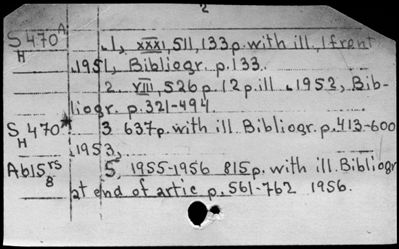 2
S470A .1, xxx1,511,133p.with ill.,1front
H .1951, Bibliogr. p.133.
2. VIII,526p.12p.ill .1952, Bib-
liogr. p.321-494.
S470* 3 637p.with ill.Bibliogr.p.413-600
H .1953,
Ab15rs 5, 1955-1956 815p.with ill.Bibliogr
8 at end of artic p.561-762 1956.